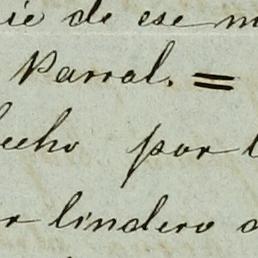 ie de ese m
Parral. =
echo por l
r lindero a